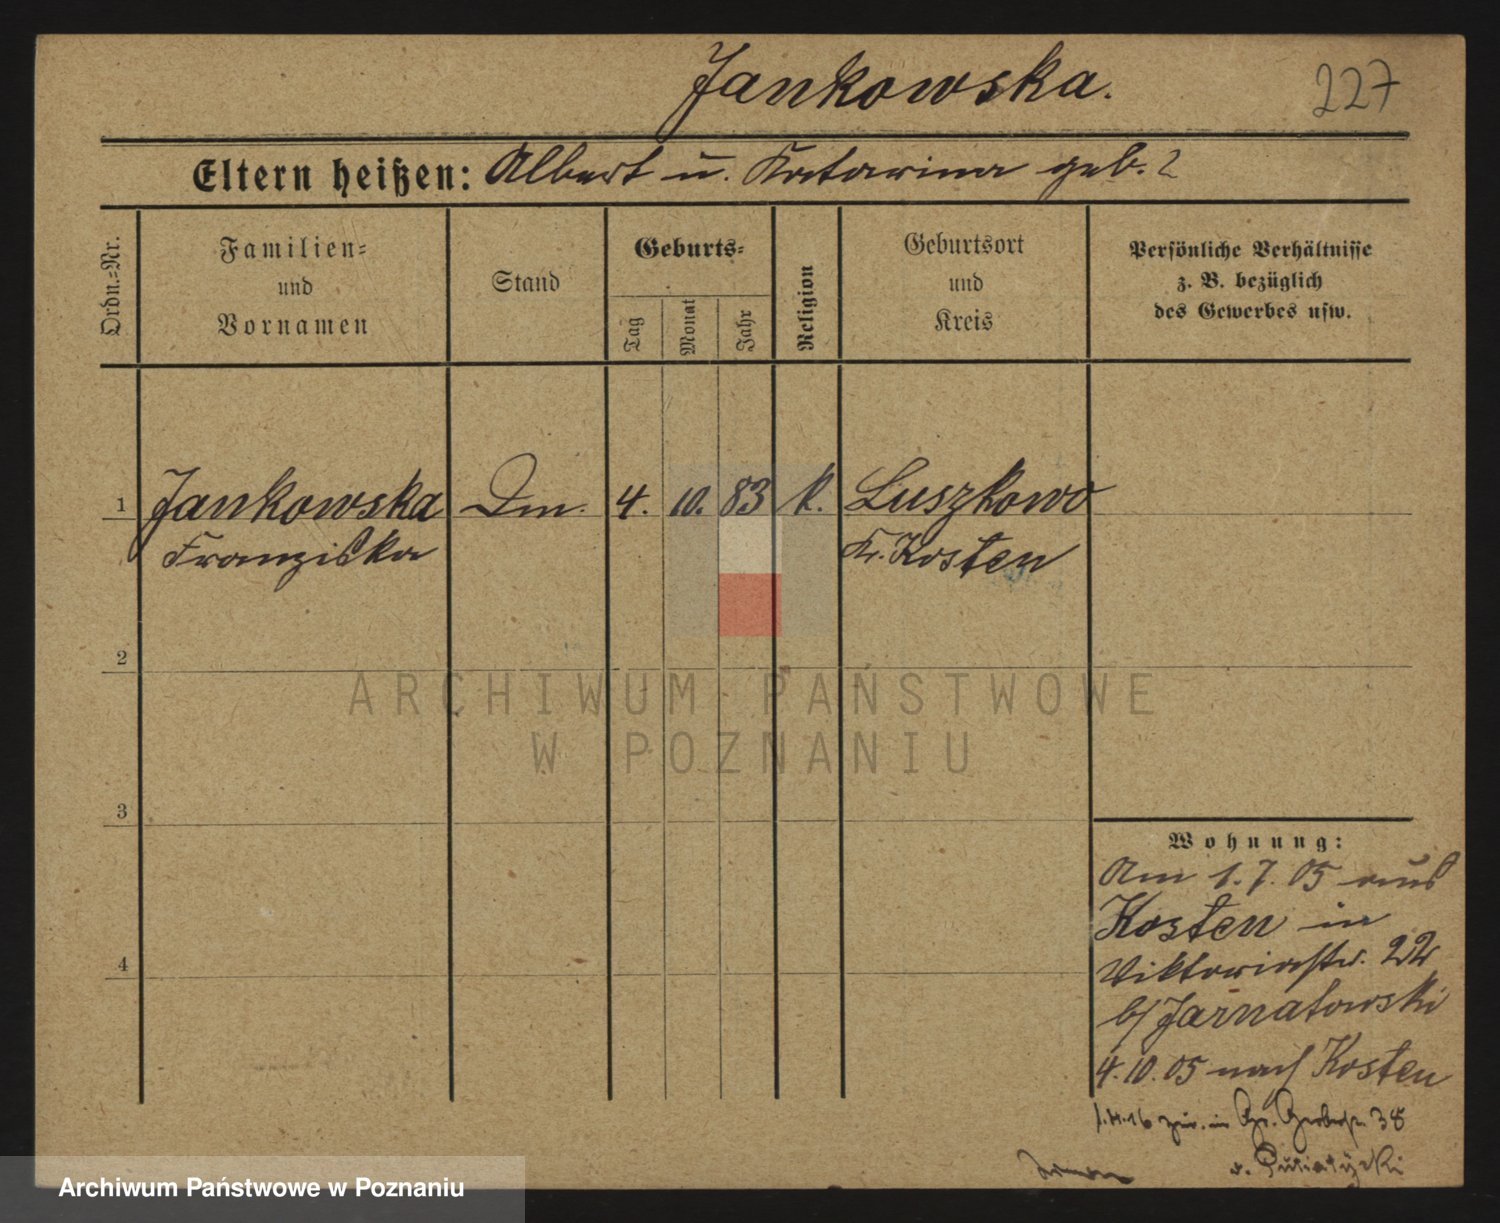 Jankowska.
227
Eltern heißen: Albert u. Katarina geb. ?
Ordn.=Nr.
Familien=
und
Vornamen
Stand
Geburts=
Tag
Monat
Jahr
Religion
Geburtsort
und
Kreis
Persönliche Verhältnisse
z. B. bezüglich
des Gewerbes usw.
1 Jankowska Dm. 4. 10. 83 k. Luszkowo
Franziska Kr. Kosten
2
ARCHIWUM PAŃSTWOWE
W POZNANIU
3
Wohnung:
Am 1. 7. 05 aus
Kosten in
Viktoriastr. 22
b/ Jarnatowski
4
4. 10. 05 nach Kosten
in Gr. Gerberstr. 38
Archiwum Państwowe w Poznaniu